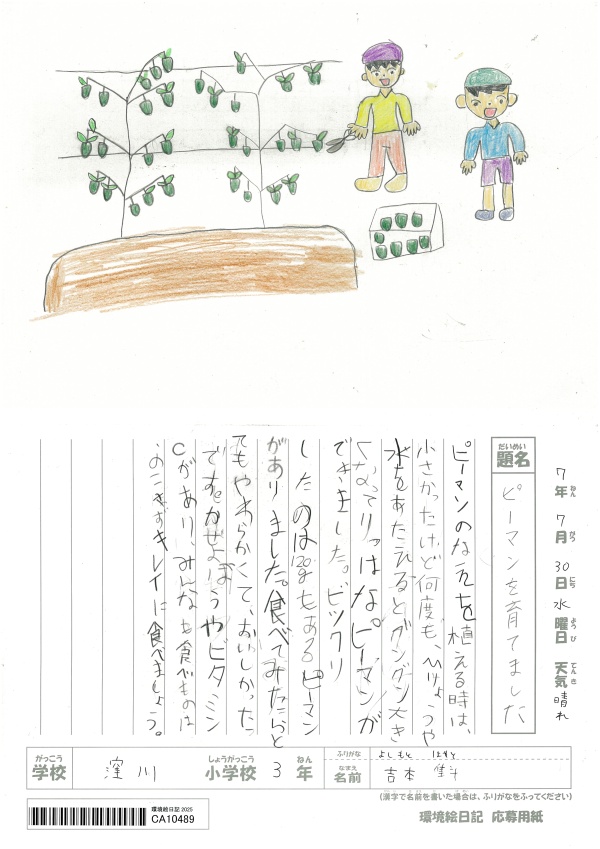 7年 7月 30日 水曜日 天気 晴れ
ねん がつ にち ようび てんき
だいめい
題名
ピーマンを育てました
ピーマンのなえを植える時は、
小さかったけど何度も、ひりょうや
水をあたえるとグングン大き
くなってりっぱな。ピーマンが
できました。ビックリ
したのは120gもあるピーマン
がありました。食べてみたらと
てもやわらかくて、おいしかった
です。かぜよぼうやビタミン
Cがあり、みんなも食べものは
のこさずキレイに食べましょう。
がっこう しょうがっこう ねん
学校 窪川 小学校 3 年
ふりがな よしもと はると
なまえ
名前 吉本
(漢字で名前を書いた場合は、ふりがなをふってください)
環境絵日記 応募用紙
環境絵日記 2025
CA10489